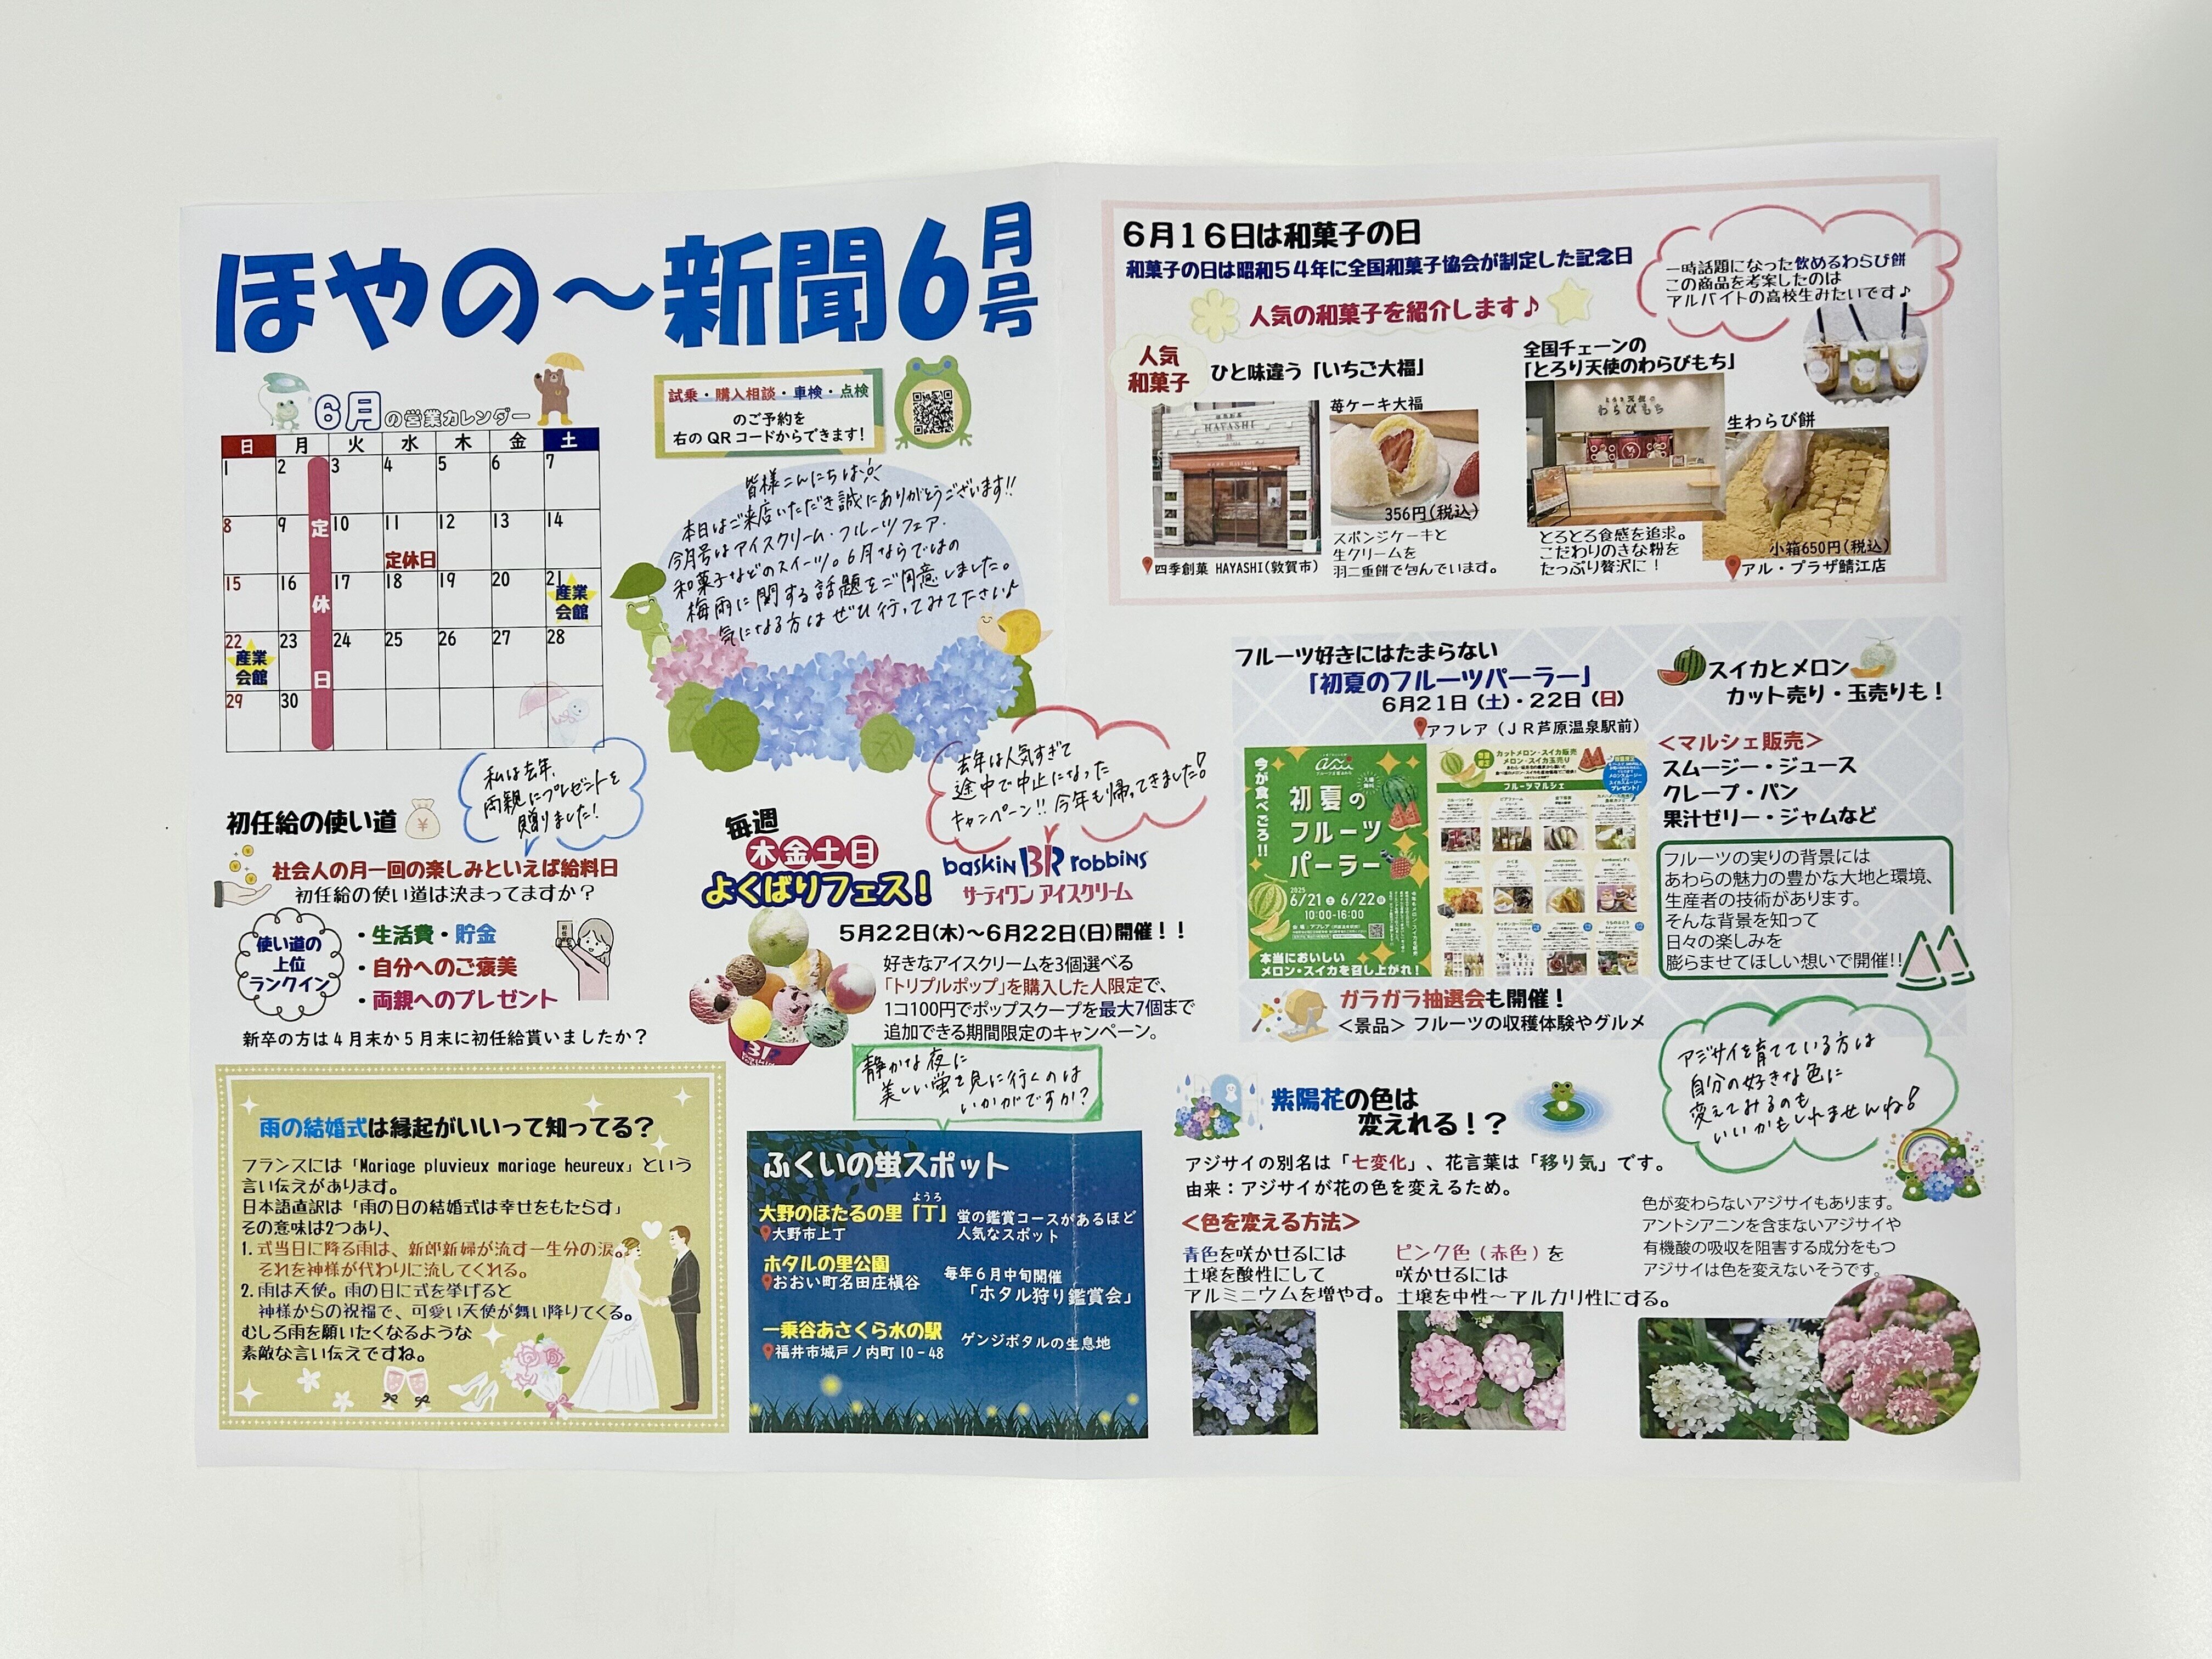 ほやの～新聞6月号
6月の営業カレンダー
日 月 火 水 木 金 土
1 2 3 4 5 6 7
8 9 10 11 12 13 14
定休日
15 16 17 18 19 20 21
産業会館
22 23 24 25 26 27 28
産業会館
29 30
定休日
試乗・購入相談・車検・点検
のご予約を
右のQRコードからできます！
皆様こんにちは
本日はご来店いただき誠にありがとうございます!!
今月号はアイスクリーム・フルーツフェア・
和菓子などのスイーツ。6月ならではの
梅雨に関する話題をご用意しました。
気になる方はぜひ行ってみてください♪
初任給の使い道
¥
私は去年、
両親にプレゼントを
贈りました!
社会人の月一回の楽しみといえば給料日
初任給の使い道は決まってますか？
使い道の
上位
ランクイン
・生活費・貯金
・自分へのご褒美
・両親へのプレゼント
新卒の方は4月末か5月末に初任給貰いましたか？
去年は人気すぎて
途中で中止になった
キャンペーン!! 今年も帰ってきました!
毎週
木金土日
よくばりフェス！
baskin BR robbins
サーティワン アイスクリーム
5月22日(木)～6月22日(日)開催！！
好きなアイスクリームを3個選べる
「トリプルポップ」を購入した人限定で、
1コ100円でポップスクープを最大7個まで
追加できる期間限定のキャンペーン。
雨の結婚式は縁起がいいって知ってる？
フランスには「Mariage pluvieux mariage heureux」という
言い伝えがあります。
日本語直訳は「雨の日の結婚式は幸せをもたらす」
その意味は2つあり、
1.式当日に降る雨は、新郎新婦が流す一生分の涙。
それを神様が代わりに流してくれる。
2.雨は天使。雨の日に式を挙げると
神様からの祝福で、可愛い天使が舞い降りてくる。
むしろ雨を願いたくなるような
素敵な言い伝えですね。
静かな夜に
美しい蛍を見に行くのは
いかがですか?
ふくいの蛍スポット
ようろ
大野のほたるの里「丁」
大野市上丁
蛍の鑑賞コースがあるほど
人気なスポット
ホタルの里公園
おおい町名田庄槇谷
毎年6月中旬開催
「ホタル狩り鑑賞会」
一乗谷あさくら水の駅
福井市城戸ノ内町10-48
ゲンジボタルの生息地
6月16日は和菓子の日
和菓子の日は昭和54年に全国和菓子協会が制定した記念日
人気の和菓子を紹介します♪
一時話題になった飲めるわらび餅
この商品を考案したのは
アルバイトの高校生みたいです♪
人気
和菓子
ひと味違う「いちご大福」
HAYASHI
苺ケーキ大福
356円(税込)
スポンジケーキと
生クリームを
羽二重餅で包んでいます。
四季創菓 HAYASHI(敦賀市)
全国チェーンの
「とろり天使のわらびもち」
わらびもち
生わらび餅
小箱650円(税込)
とろとろ食感を追求。
こだわりのきな粉を
たっぷり贅沢に！
アル・プラザ鯖江店
フルーツ好きにはたまらない
「初夏のフルーツパーラー」
6月21日(土)・22日(日)
アフレア（ＪＲ芦原温泉駅前）
今が食べごろ!!
初夏の
フルーツ
パーラー
2025
6/21 土 6/22 日
10:00-16:00
本当においしい
メロン・スイカを召し上がれ！
カットメロン・スイカ販売
メロン・スイカ玉売り
フルーツマルシェ
スイカとメロン
カット売り・玉売りも！
＜マルシェ販売＞
スムージー・ジュース
クレープ・パン
果汁ゼリー・ジャムなど
フルーツの実りの背景には
あわらの魅力の豊かな大地と環境、
生産者の技術があります。
そんな背景を知って
日々の楽しみを
膨らませてほしい想いで開催!!
ガラガラ抽選会も開催！
＜景品＞ フルーツの収穫体験やグルメ
紫陽花の色は
変えれる！？
アジサイを育てている方は
自分の好きな色に
変えてみるのも
いいかもしれませんね!
アジサイの別名は「七変化」、花言葉は「移り気」です。
由来：アジサイが花の色を変えるため。
＜色を変える方法＞
青色を咲かせるには
土壌を酸性にして
アルミニウムを増やす。
ピンク色（赤色）を
咲かせるには
土壌を中性～アルカリ性にする。
色が変わらないアジサイもあります。
アントシアニンを含まないアジサイや
有機酸の吸収を阻害する成分をもつ
アジサイは色を変えないそうです。